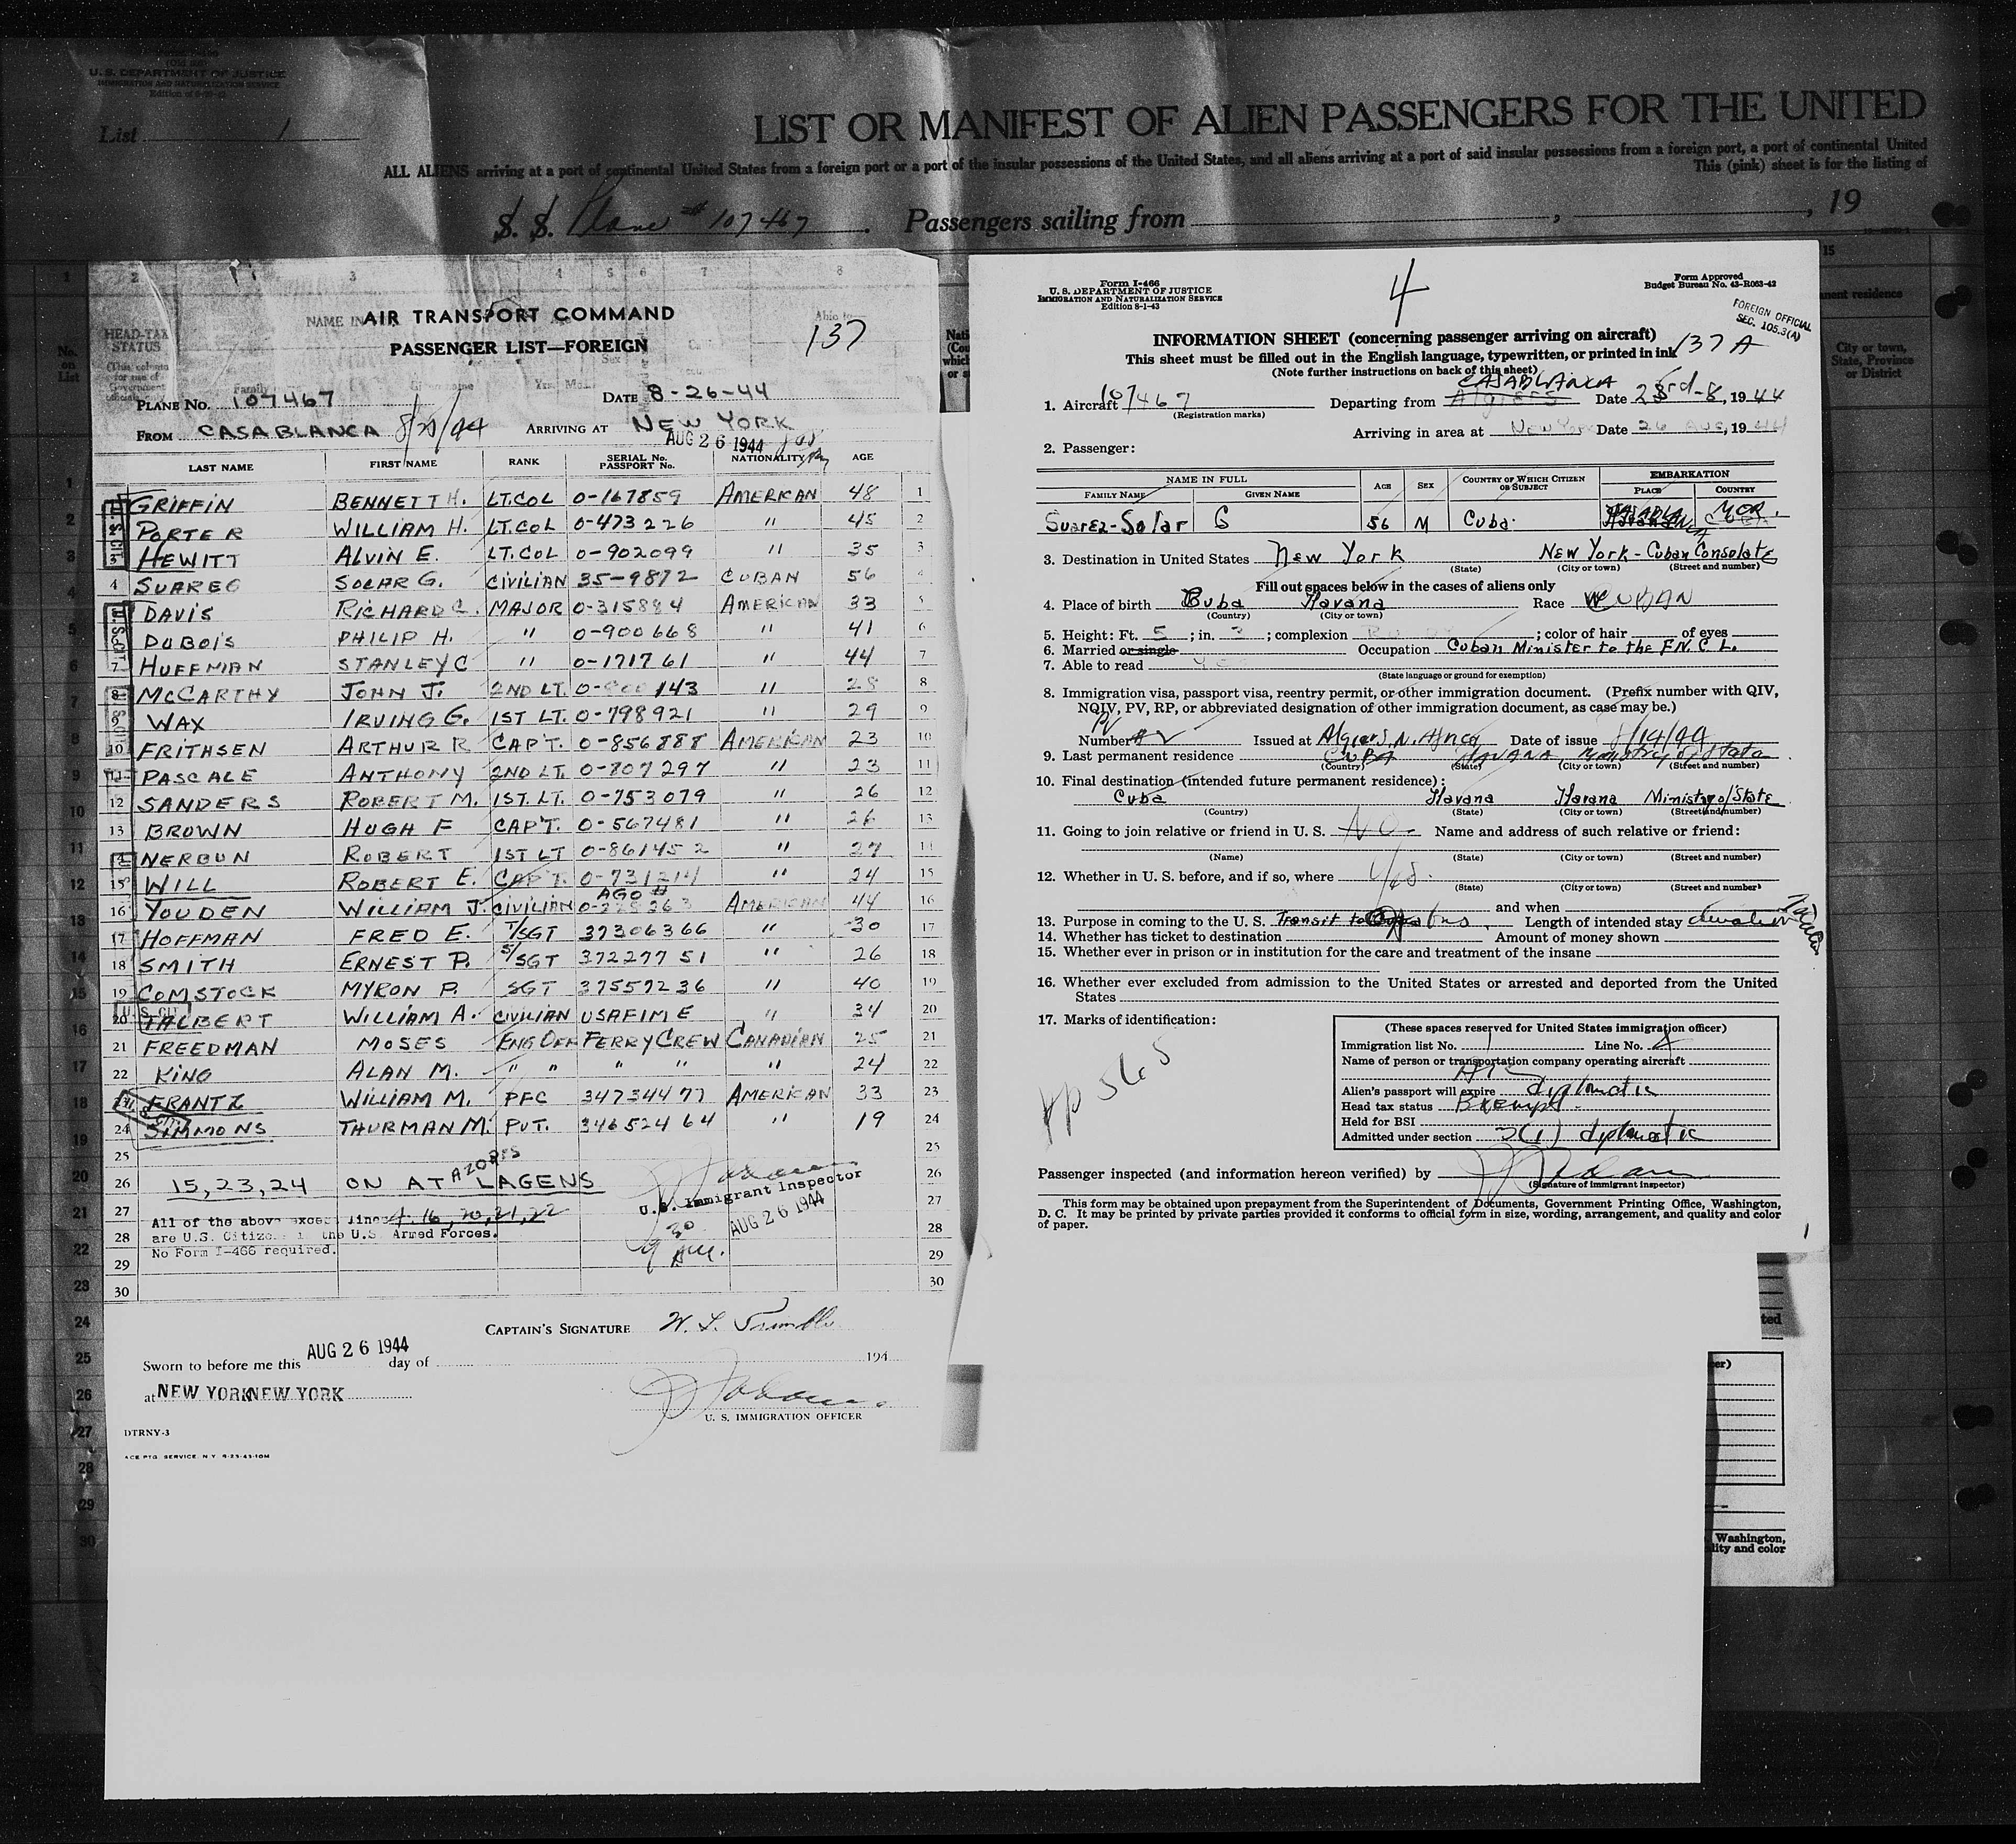 U. S. DEPARTMENT OF JUSTICE
IMMIGRATION AND NATURALIZATION SERVICE
List 1
LIST OR MANIFEST OF ALIEN PASSENGERS FOR THE UNITED
ALL ALIENS arriving at a port of continental United States from a foreign port or a port of the insular possessions of the United States, and all aliens arriving at a port of said insular possessions from a foreign port, a port of continental United
This (pink) sheet is for the listing of
S. S. Plane # 107467. Passengers sailing from , , 19
AIR TRANSPORT COMMAND
PASSENGER LIST—FOREIGN
137
PLANE NO. 107467 DATE 8-26-44
FROM CASABLANCA ARRIVING AT NEW YORK
AUG 26 1944
LAST NAME FIRST NAME RANK SERIAL No. PASSPORT No. NATIONALITY AGE
1 GRIFFIN BENNETT H. LT.COL 0-167859 AMERICAN 48 1
2 PORTER WILLIAM H. LT.COL 0-473226 " 45 2
3 HEWITT ALVIN E. LT.COL 0-902099 " 35 3
4 SUAREG SOLAR G. CIVILIAN 35-9872 CUBAN 56 4
DAVIS RICHARD C. MAJOR 0-315884 AMERICAN 33 5
DUBOIS PHILIP H. " 0-900668 " 41 6
7 HUFFMAN STANLEY C " 0-171761 " 44 7
8 McCARTHY JOHN J. 2ND LT. 143 " 28 8
9 WAX IRVING G. 1ST LT. 0-798921 " 29 9
10 FRITHSEN ARTHUR R CAPT. 0-856888 AMERICAN 23 10
11 PASCALE ANTHONY 2ND LT. 0-807297 " 23 11
12 SANDERS ROBERT M. 1ST. LT. 0-753079 " 26 12
13 BROWN HUGH F CAPT. 0-567481 " 26 13
NERBUN ROBERT 1ST LT 0-861452 " 27 14
15 WILL ROBERT E. CAPT. 0-731214 " 24 15
16 YOUDEN WILLIAM J. CIVILIAN AGO # AMERICAN 44 16
17 HOFFMAN FRED E. T/SGT 37306366 " 30 17
18 SMITH ERNEST P. S/SGT 37227751 " 26 18
19 COMSTOCK MYRON P. SGT 37557236 " 40 19
20 TALBERT WILLIAM A. CIVILIAN USAFIME " 34 20
21 FREEDMAN MOSES ENG OFF FERRY CREW CANADIAN 25 21
22 KING ALAN M. " " " " " 24 22
FRANTZ WILLIAM M. PFC 34734477 AMERICAN 33 23
24 SIMMONS THURMAN M. PVT. 34652464 " 19 24
25 25
26 15, 23, 24 ON AT LAGENS AZORES 26
U.S. Immigrant Inspector
AUG 26 1944
27 All of the above except lines 4, 16, 20, 21, 22 27
28 are U.S. Citizens in the U.S. Armed Forces. 28
No Form I-466 required.
29 29
30 30
CAPTAIN'S SIGNATURE
Sworn to before me this AUG 26 1944 day of 194
at NEW YORK NEW YORK
U. S. IMMIGRATION OFFICER
DTRNY-3
ACE PTG. SERVICE. N.Y. 9-23-43-10M
Form I-466
U. S. DEPARTMENT OF JUSTICE
IMMIGRATION AND NATURALIZATION SERVICE
Edition 8-1-43
4
Form Approved
Budget Bureau No. 43-R063-42
FOREIGN OFFICIAL
SEC. 105.3(A)
INFORMATION SHEET (concerning passenger arriving on aircraft)
137 A
This sheet must be filled out in the English language, typewritten, or printed in ink
(Note further instructions on back of this sheet)
1. Aircraft 107467 Departing from Algiers CASABLANCA Date 23rd-8, 1944
(Registration marks)
Arriving in area at New York Date 26 AUG, 1944
2. Passenger:
NAME IN FULL AGE SEX COUNTRY OF WHICH CITIZEN OR SUBJECT EMBARKATION
FAMILY NAME GIVEN NAME PLACE COUNTRY
Suarez-Solar G 56 M Cuba MOR.
3. Destination in United States New York New York - Cuban Consolate
(State) (City or town) (Street and number)
Fill out spaces below in the cases of aliens only
4. Place of birth Cuba Havana Race CUBAN
(Country) (City or town)
5. Height: Ft. 5; in. 3; complexion ; color of hair of eyes
6. Married or single Occupation Cuban Minister to the F.N.C.L.
7. Able to read Yes
(State language or ground for exemption)
8. Immigration visa, passport visa, reentry permit, or other immigration document. (Prefix number with QIV,
NQIV, PV, RP, or abbreviated designation of other immigration document, as case may be.)
Number PV Issued at Algiers, N. Africa Date of issue 8/14/44
9. Last permanent residence CUBA HAVANA Ministry of State
(Country) (State) (City or town) (Street and number)
10. Final destination (intended future permanent residence):
Cuba Havana Havana Ministry of State
(Country) (State) (City or town) (Street and number)
11. Going to join relative or friend in U. S. NO- Name and address of such relative or friend:
(Name) (State) (City or town) (Street and number)
12. Whether in U. S. before, and if so, where Yes.
(State) (City or town) (Street and number)
and when
13. Purpose in coming to the U. S. Transit to Length of intended stay
14. Whether has ticket to destination Amount of money shown
15. Whether ever in prison or in institution for the care and treatment of the insane
16. Whether ever excluded from admission to the United States or arrested and deported from the United
States
17. Marks of identification:
(These spaces reserved for United States immigration officer)
Immigration list No. 1 Line No. 4
Name of person or transportation company operating aircraft
ATC
Alien's passport will expire diplomatic
Head tax status Exempt.
Held for BSI
Admitted under section 3(1) diplomatic
Passenger inspected (and information hereon verified) by
(Signature of immigrant inspector)
This form may be obtained upon prepayment from the Superintendent of Documents, Government Printing Office, Washington,
D. C. It may be printed by private parties provided it conforms to official form in size, wording, arrangement, and quality and color
of paper.